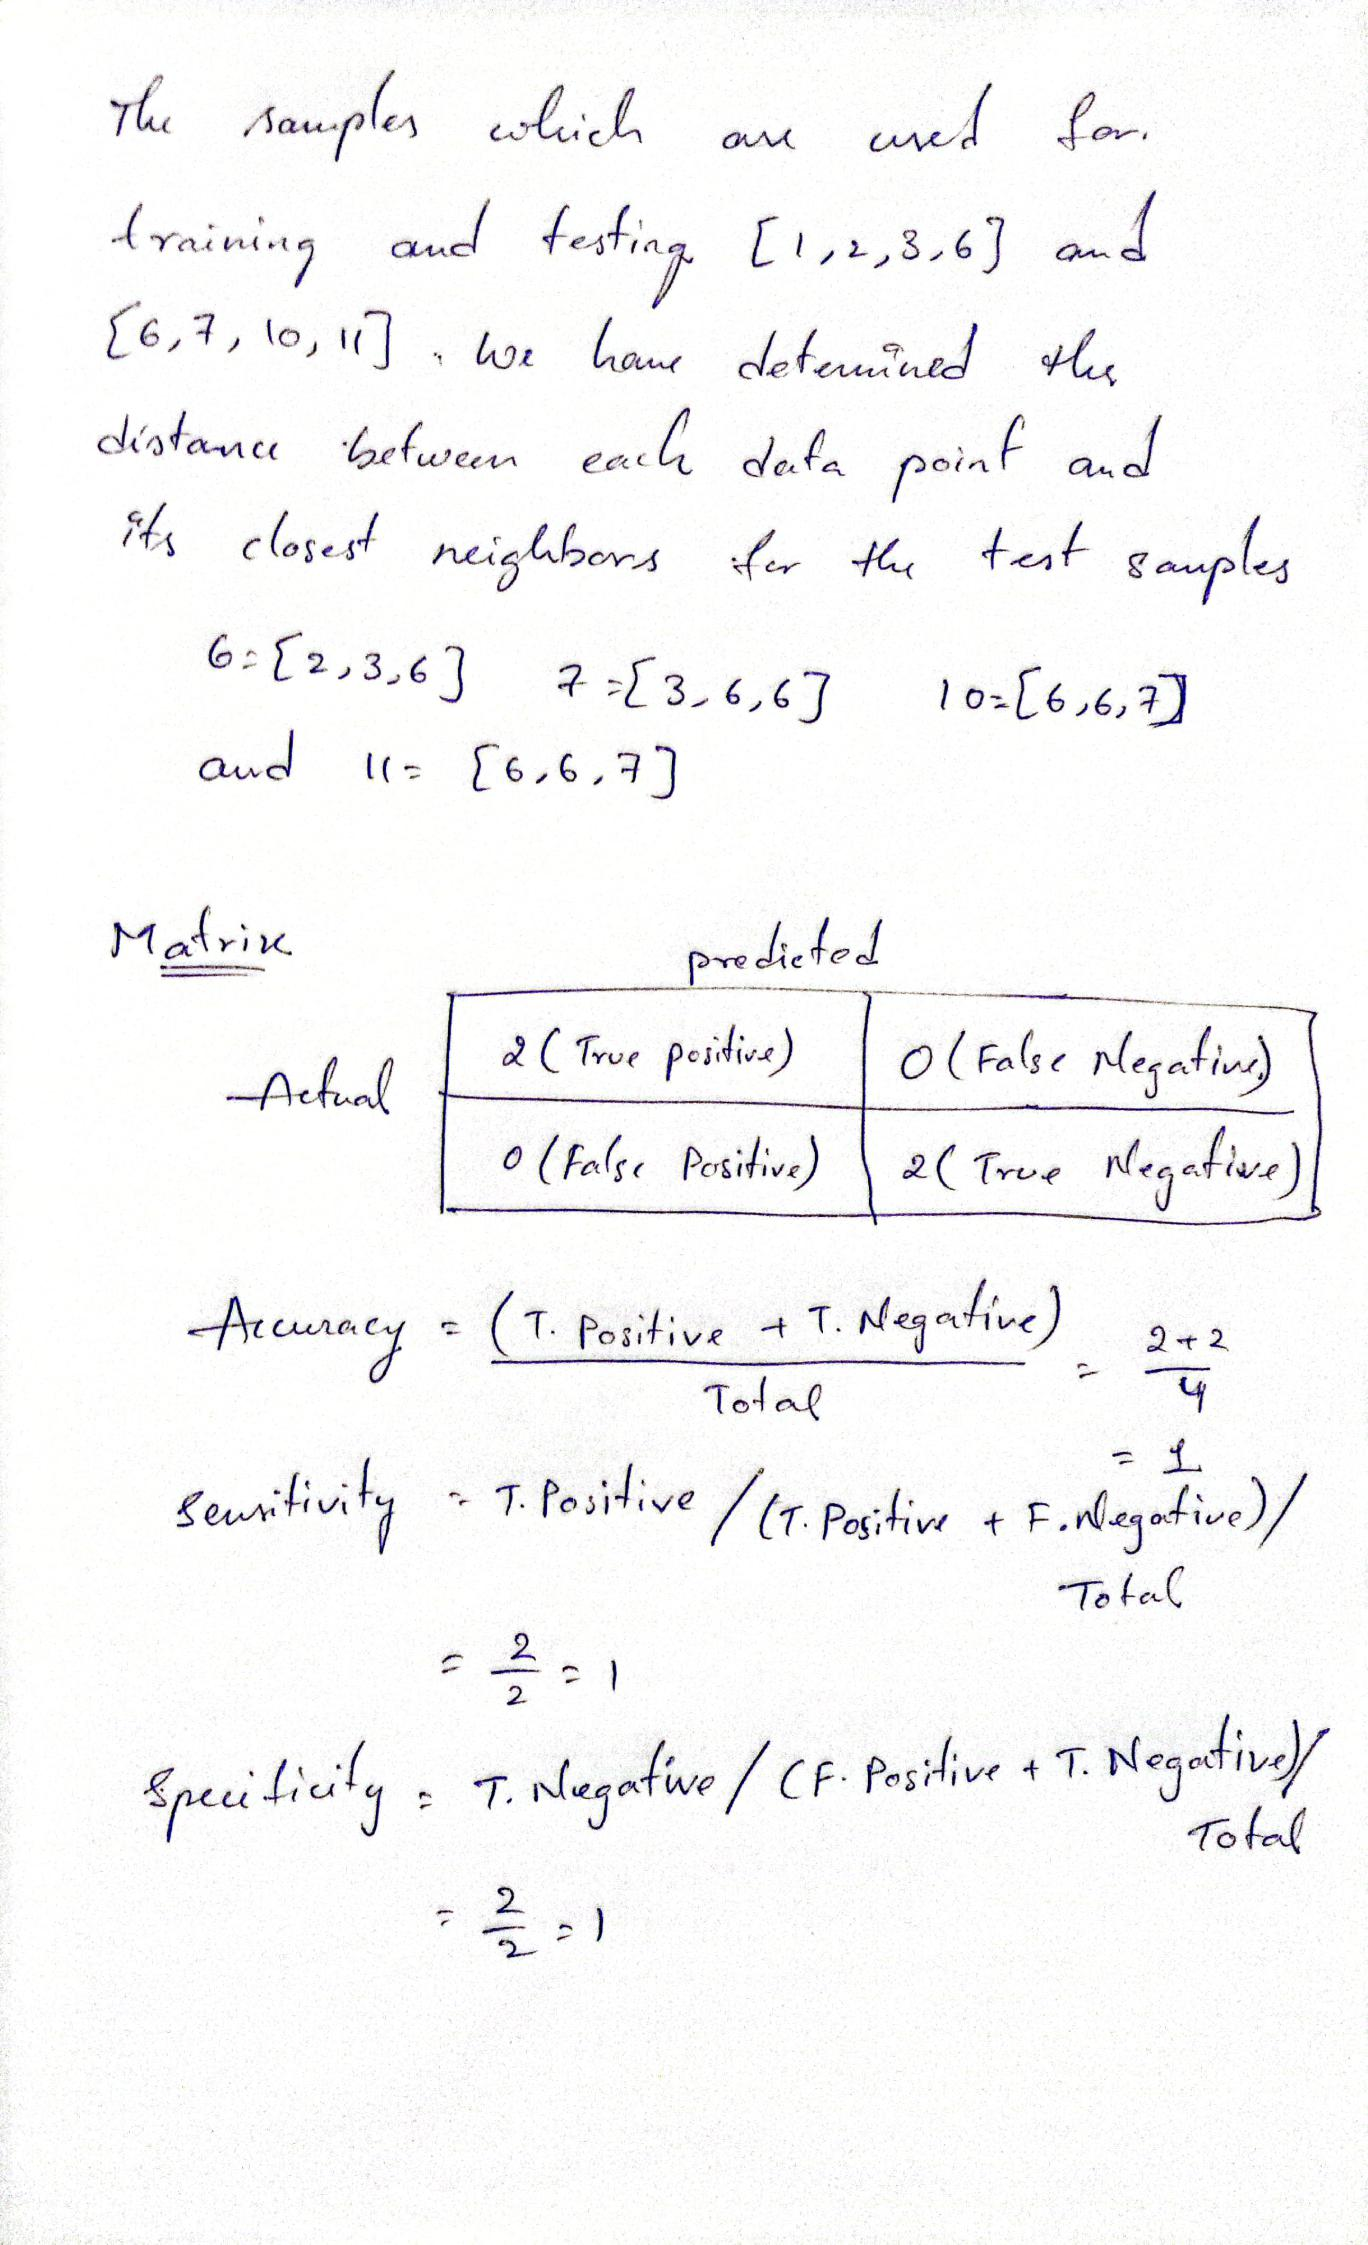 The samples which are used for.
training and testing [1,2,3,6] and
[6,7,10,11]. We have determined the
distance between each data point and
its closest neighbors for the test samples
6=[2,3,6] 7=[3,6,6] 10=[6,6,7]
and 11= [6,6,7]
Matrix
predicted
2 (True positive) 0 (False Negative)
Actual
0 (False Positive) 2 (True Negative)
Accuracy = (T. Positive + T. Negative) = 2+2
Total 4
= 1
Sensitivity = T. Positive / (T. Positive + F. Negative)/
Total
= 2/2 = 1
Specificity = T. Negative / (F. Positive + T. Negative)/
Total
= 2/2 = 1